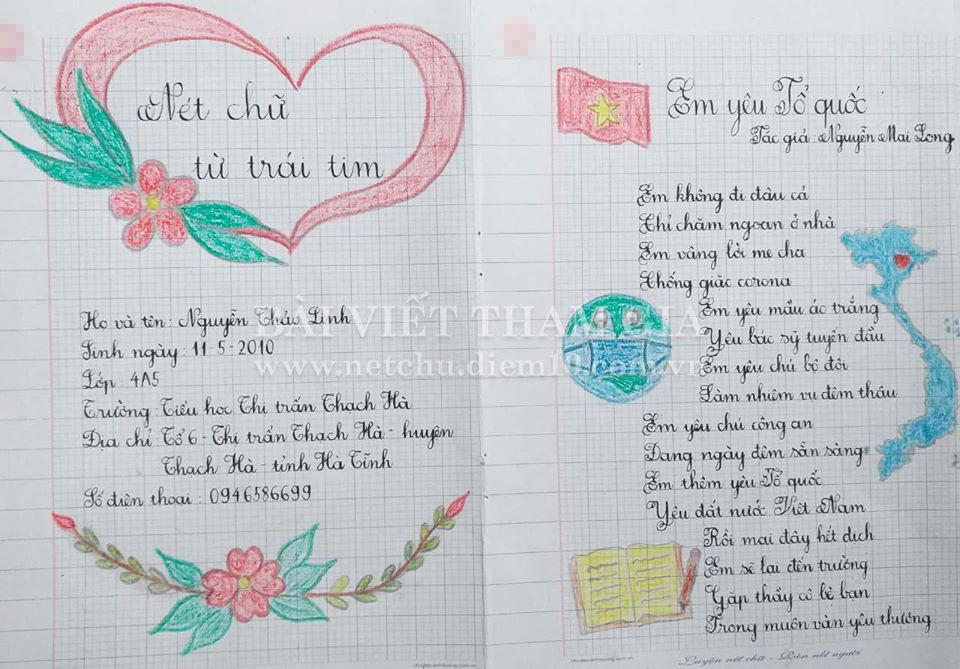 Nét chữ
từ trái tim
Họ và tên: Nguyễn Thảo Linh
Sinh ngày: 11-5-2010
Lớp 4A5
Trường Tiểu học Thị trấn Thạch Hà
Địa chỉ Tổ 6 - Thị trấn Thạch Hà - huyện
Thạch Hà - tỉnh Hà Tĩnh
Số điện thoại: 0946586699
Em yêu Tổ quốc
Tác giả: Nguyễn Mai Long
Em không đi đâu cả
Chỉ chăm ngoan ở nhà
Em vâng lời mẹ cha
Chống giặc corona
Em yêu mầu áo trắng
Yêu bác sỹ tuyến đầu
Em yêu chú bộ đôi
Làm nhiệm vụ đêm thâu
Em yêu chú công an
Đang ngày đêm sẵn sàng
Em thêm yêu Tổ quốc
Yêu đất nước Việt Nam
Rồi mai đây hết dịch
Em sẽ lại đến trường
Gặp thầy cô bè bạn
Trong muôn vàn yêu thương
Luyện nét chữ - Rèn nết người
BÀI VIẾT THAM GIA
www.netchu.diem10.com.vn